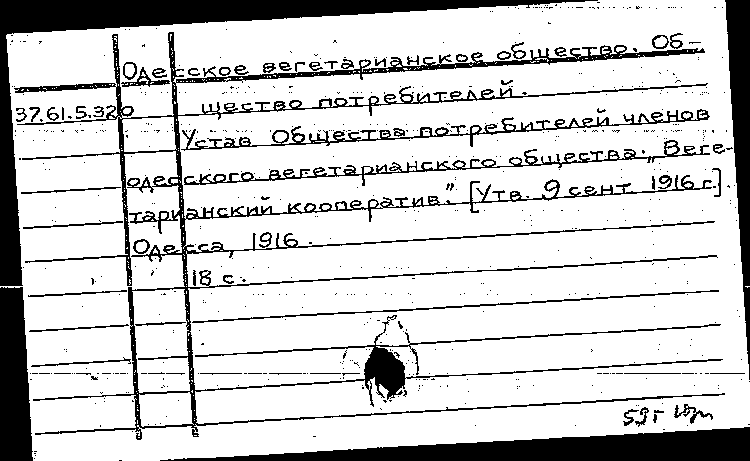 Одесское вегетарианское общество. Об-
37.61.5.320 щество потребителей.
Устав Общества потребителей членов
одесского вегетарианского общества „Веге-
тарианский кооператив". [Утв. 9 сент. 1916 г.].
Одесса, 1916.
18 с.
59г